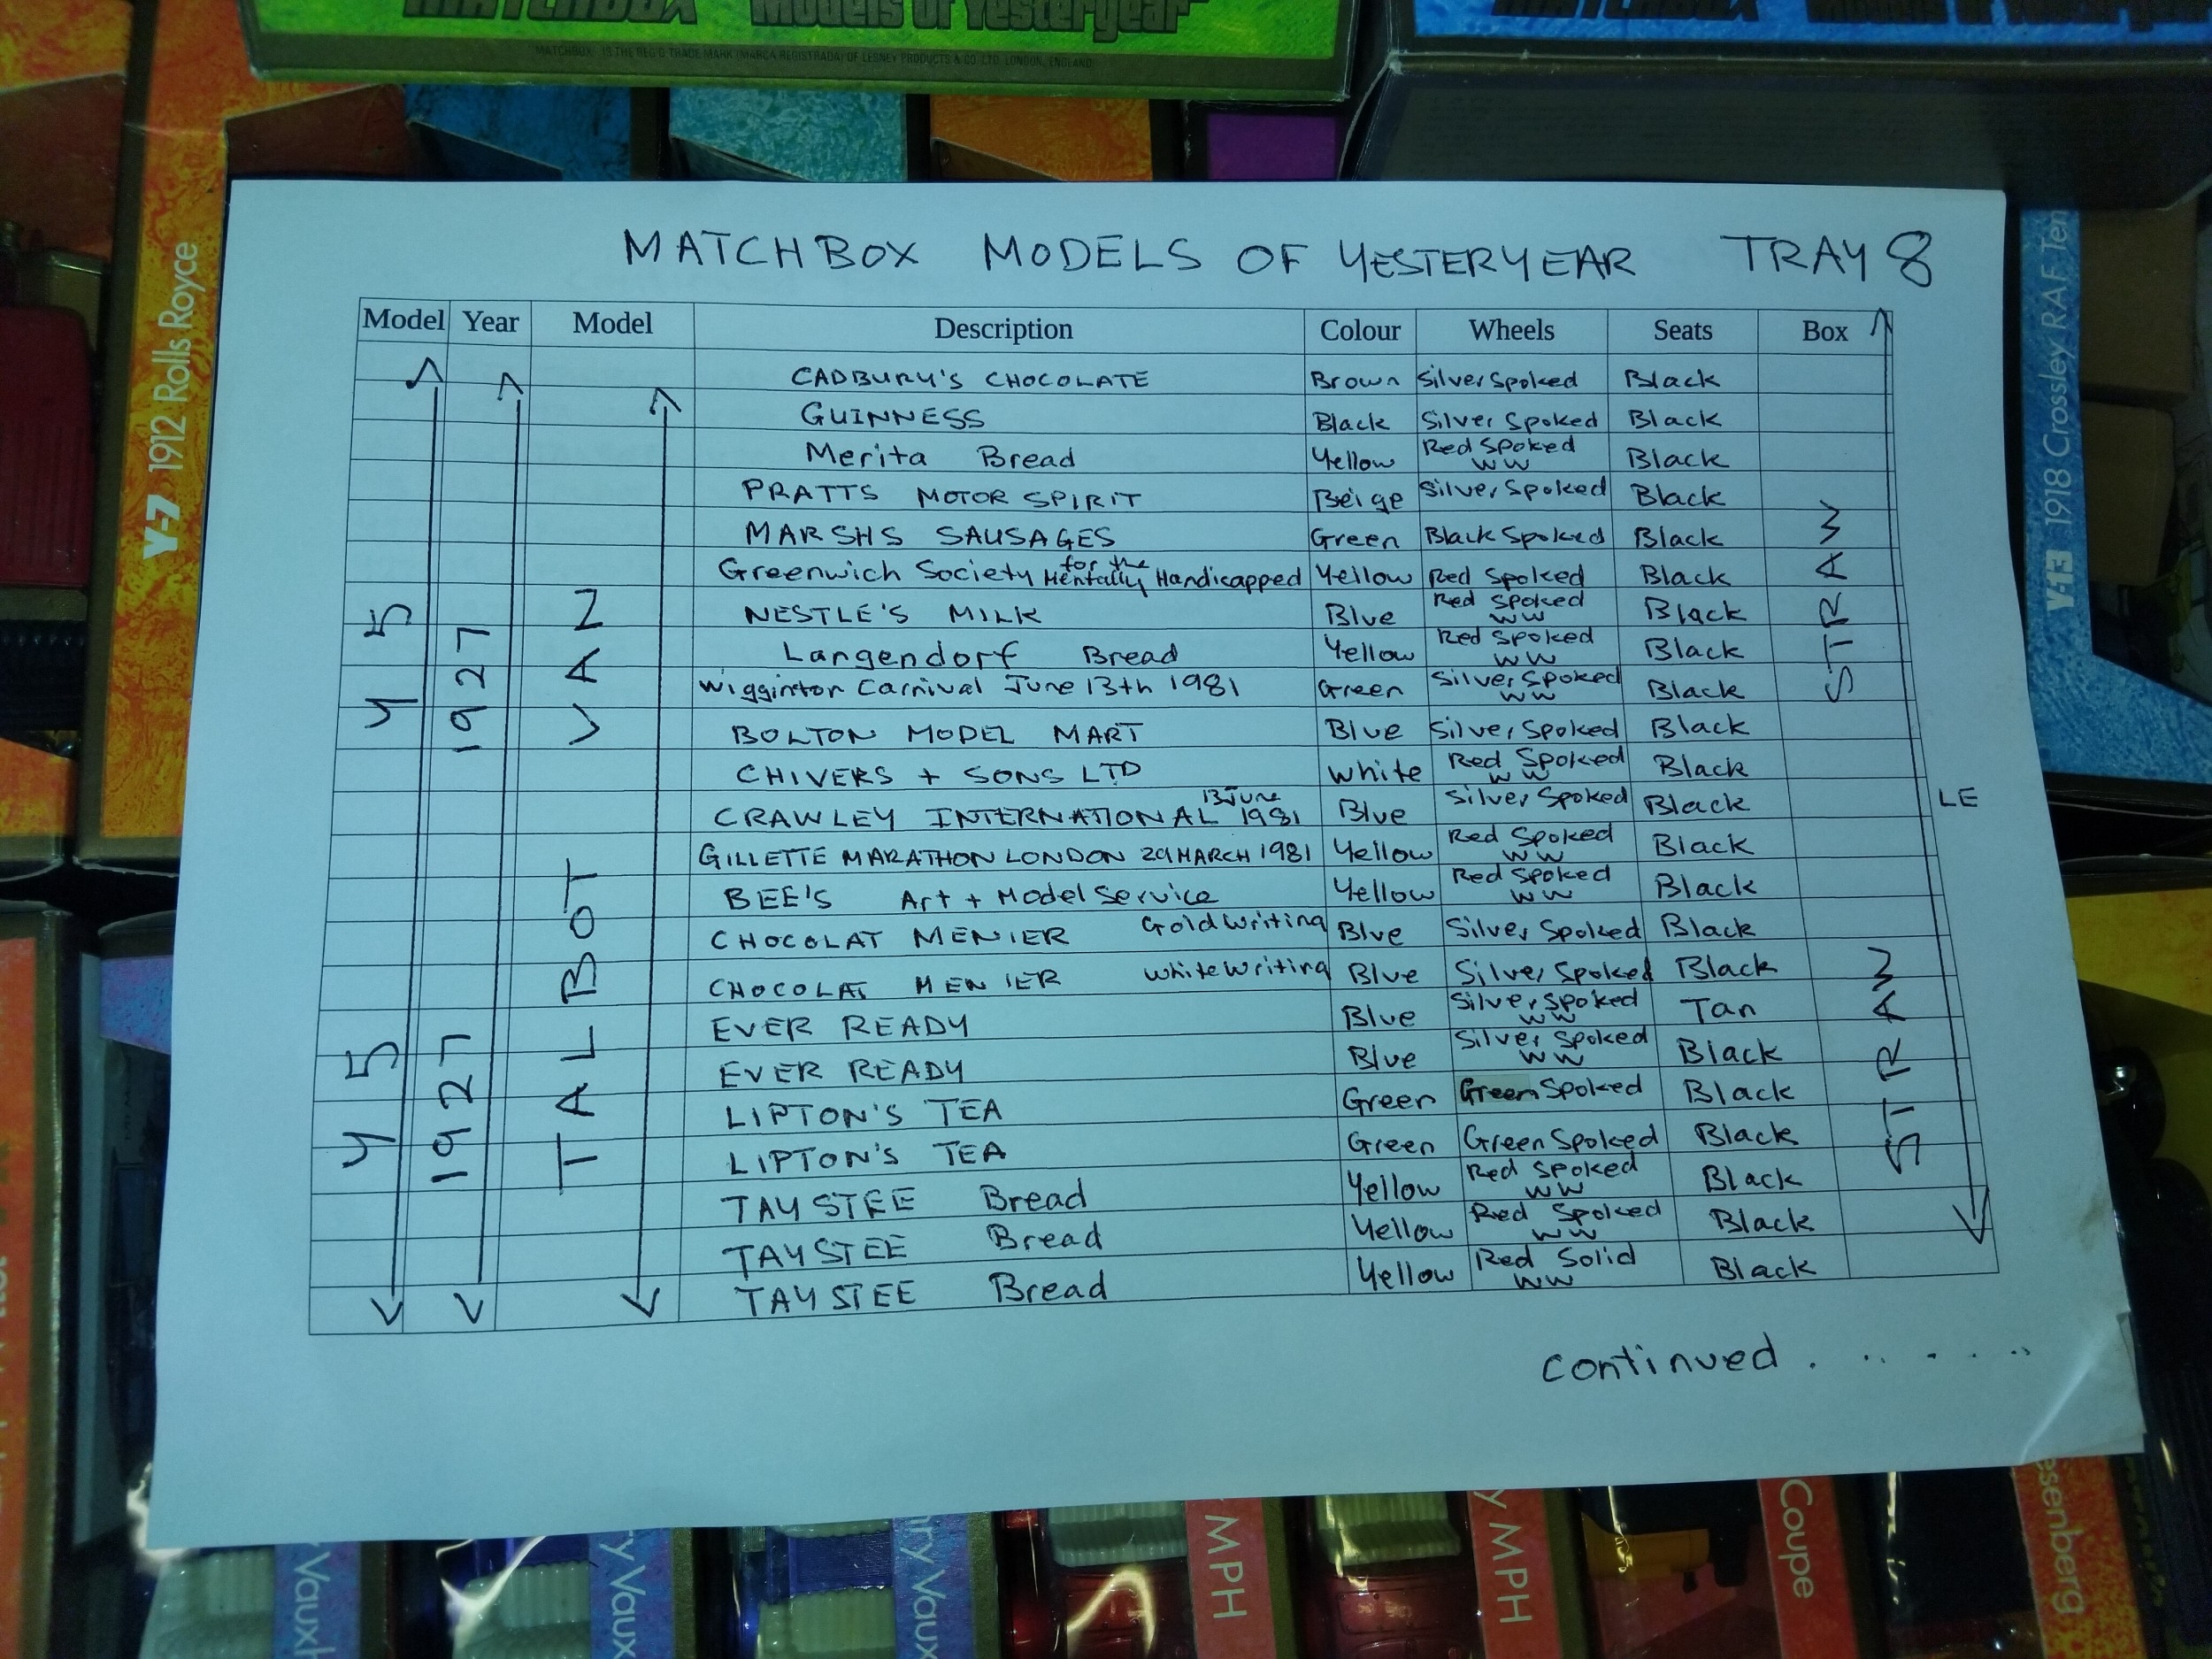 MATCHBOX Models of Yesteryear
"MATCHBOX" IS THE REG'D TRADE MARK (MARCA REGISTRADA) OF LESNEY PRODUCTS & CO. LTD. LONDON, ENGLAND
Y-7 1912 Rolls Royce
Y-13 1918 Crossley RAF Ten
MATCHBOX MODELS OF YESTERYEAR TRAY 8
Model Year Model Description Colour Wheels Seats Box
CADBURY'S CHOCOLATE Brown Silver Spoked Black
GUINNESS Black Silver Spoked Black
Merita Bread Yellow Red Spoked WW Black
PRATTS MOTOR SPIRIT Beige Silver Spoked Black
MARSHS SAUSAGES Green Black Spoked Black
Greenwich Society for the Mentally Handicapped Yellow Red Spoked Black
NESTLE'S MILK Blue Red Spoked WW Black
Langendorf Bread Yellow Red Spoked WW Black
Wigginton Carnival June 13th 1981 Green Silver Spoked WW Black
BOLTON MODEL MART Blue Silver Spoked Black
CHIVERS + SONS LTD White Red Spoked WW Black
CRAWLEY INTERNATIONAL 13 June 1981 Blue Silver Spoked Black
LE
GILLETTE MARATHON LONDON 29 MARCH 1981 Yellow Red Spoked WW Black
BEE'S Art + Model Service Yellow Red Spoked WW Black
CHOCOLAT MENIER Gold Writing Blue Silver Spoked Black
CHOCOLAT MENIER White Writing Blue Silver Spoked Black
EVER READY Blue Silver Spoked WW Tan
EVER READY Blue Silver Spoked WW Black
LIPTON'S TEA Green Green Spoked Black
LIPTON'S TEA Green Green Spoked Black
TAYSTEE Bread Yellow Red Spoked WW Black
TAYSTEE Bread Yellow Red Spoked WW Black
TAYSTEE Bread Yellow Red Solid WW Black
Y5 Y5
1927 1927
TALBOT VAN
STRAW STRAW
continued . .. . . . ..
y Vauxh
ry Vaux
nry Vaux
MPH
y MPH
Coupe
esenberg